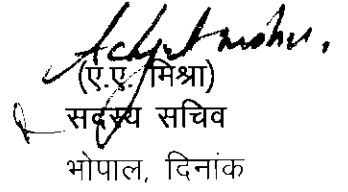 (ए.ए. मिश्रा)
सदस्य सचिव
भोपाल, दिनांक